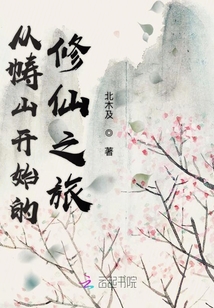 从帱山开始的
修仙之旅
北木及 ◎ 著
云起书院